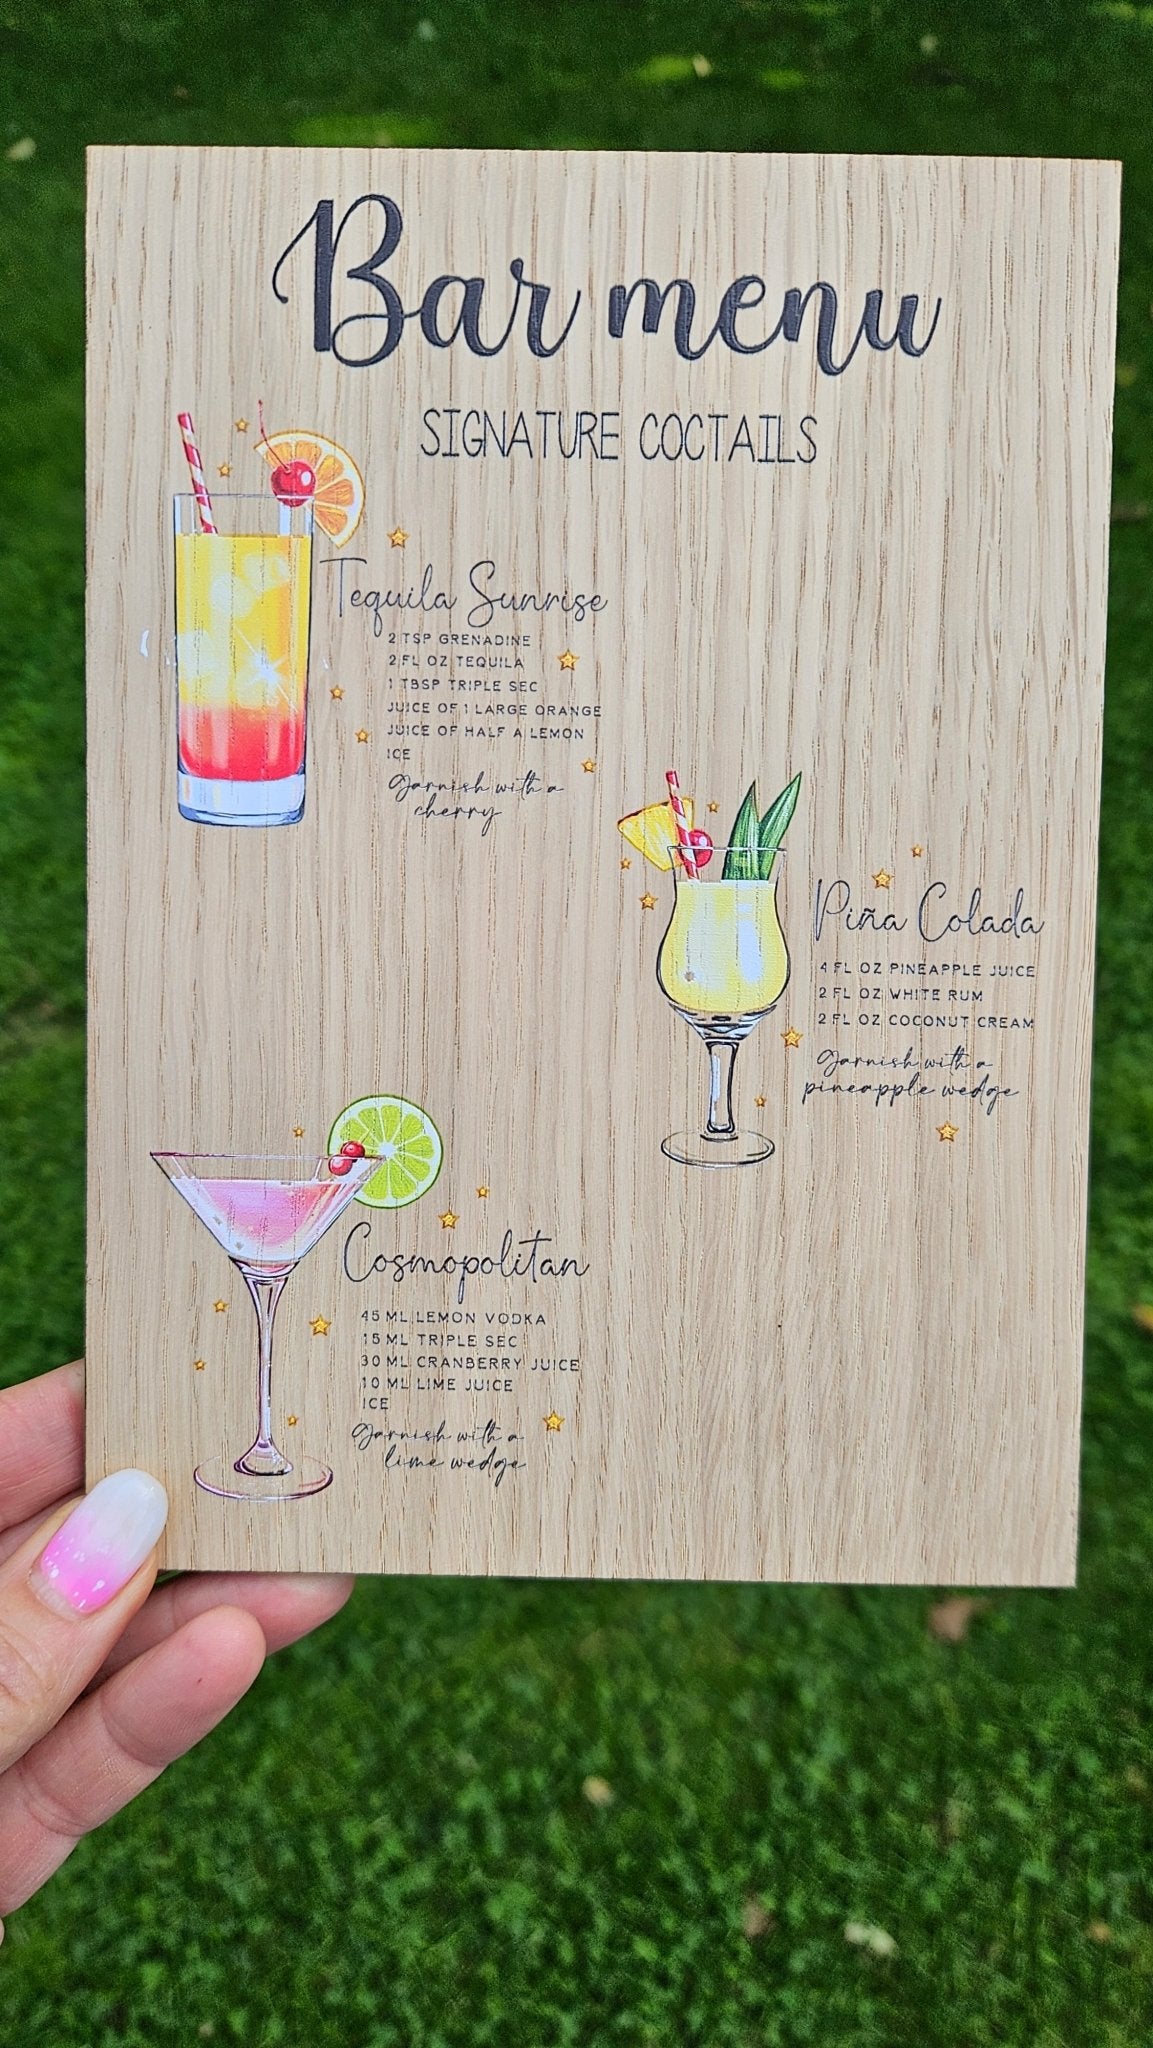 Bar menu
SIGNATURE COCTAILS
Tequila Sunrise
2 TSP GRENADINE
2 FL OZ TEQUILA
1 TBSP TRIPLE SEC
JUICE OF 1 LARGE ORANGE
JUICE OF HALF A LEMON
ICE
Garnish with a
cherry
Piña Colada
4 FL OZ PINEAPPLE JUICE
2 FL OZ WHITE RUM
2 FL OZ COCONUT CREAM
Garnish with a
pineapple wedge
Cosmopolitan
45 ML LEMON VODKA
15 ML TRIPLE SEC
30 ML CRANBERRY JUICE
10 ML LIME JUICE
ICE
Garnish with a
lime wedge